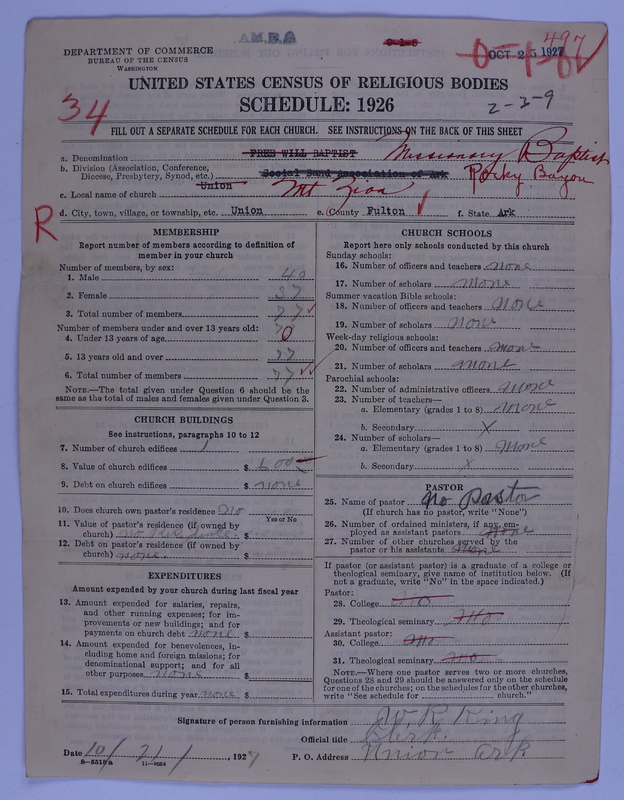 A.M.B.A
0-1-8
497
DEPARTMENT OF COMMERCE
BUREAU OF THE CENSUS
WASHINGTON
OCT 25 1927
UNITED STATES CENSUS OF RELIGIOUS BODIES
SCHEDULE: 1926
34
2-3-9
FILL OUT A SEPARATE SCHEDULE FOR EACH CHURCH. SEE INSTRUCTIONS ON THE BACK OF THIS SHEET
a. Denomination FREE WILL BAPTIST Missionary Baptist
b. Division (Association, Conference, Diocese, Presbytery, Synod, etc.) Social Band Association of Ark Rocky Bayou
c. Local name of church Union Mt Zion
d. City, town, village, or township, etc. Union e. County Fulton f. State Ark
R
MEMBERSHIP
Report number of members according to definition of
member in your church
Number of members, by sex:
1. Male 40
2. Female 37
3. Total number of members 77
Number of members under and over 13 years old:
4. Under 13 years of age 0
5. 13 years old and over 77
6. Total number of members 77
NOTE.—The total given under Question 6 should be the
same as the total of males and females given under Question 3.
CHURCH BUILDINGS
See instructions, paragraphs 10 to 12
7. Number of church edifices 1
8. Value of church edifices $ 600
9. Debt on church edifices $ none
10. Does church own pastor's residence No
Yes or No
11. Value of pastor's residence (if owned by
church) No Residence $
12. Debt on pastor's residence (if owned by
church) none $
EXPENDITURES
Amount expended by your church during last fiscal year
13. Amount expended for salaries, repairs,
and other running expenses; for im-
provements or new buildings; and for
payments on church debt none $
14. Amount expended for benevolences, in-
cluding home and foreign missions; for
denominational support; and for all
other purposes none $
15. Total expenditures during year none $
CHURCH SCHOOLS
Report here only schools conducted by this church
Sunday schools:
16. Number of officers and teachers none
17. Number of scholars none
Summer vacation Bible schools:
18. Number of officers and teachers None
19. Number of scholars None
Week-day religious schools:
20. Number of officers and teachers none
21. Number of scholars none
Parochial schools:
22. Number of administrative officers none
23. Number of teachers—
a. Elementary (grades 1 to 8) none
b. Secondary X
24. Number of scholars—
a. Elementary (grades 1 to 8) None
b. Secondary X
PASTOR
25. Name of pastor No Pastor
(If church has no pastor, write "None")
26. Number of ordained ministers, if any, em-
ployed as assistant pastors None
27. Number of other churches served by the
pastor or his assistants None
If pastor (or assistant pastor) is a graduate of a college or
theological seminary, give name of institution below. (If
not a graduate, write "No" in the space indicated.)
Pastor:
28. College No
29. Theological seminary No
Assistant pastor:
30. College No
31. Theological seminary No
NOTE.—Where one pastor serves two or more churches,
Questions 28 and 29 should be answered only on the schedule
for one of the churches; on the schedules for the other churches,
write "See schedule for church."
Signature of person furnishing information W R King
Official title Clerk
Date 10/21/, 1927 P. O. Address Union Ark
8-5518a 11-9054